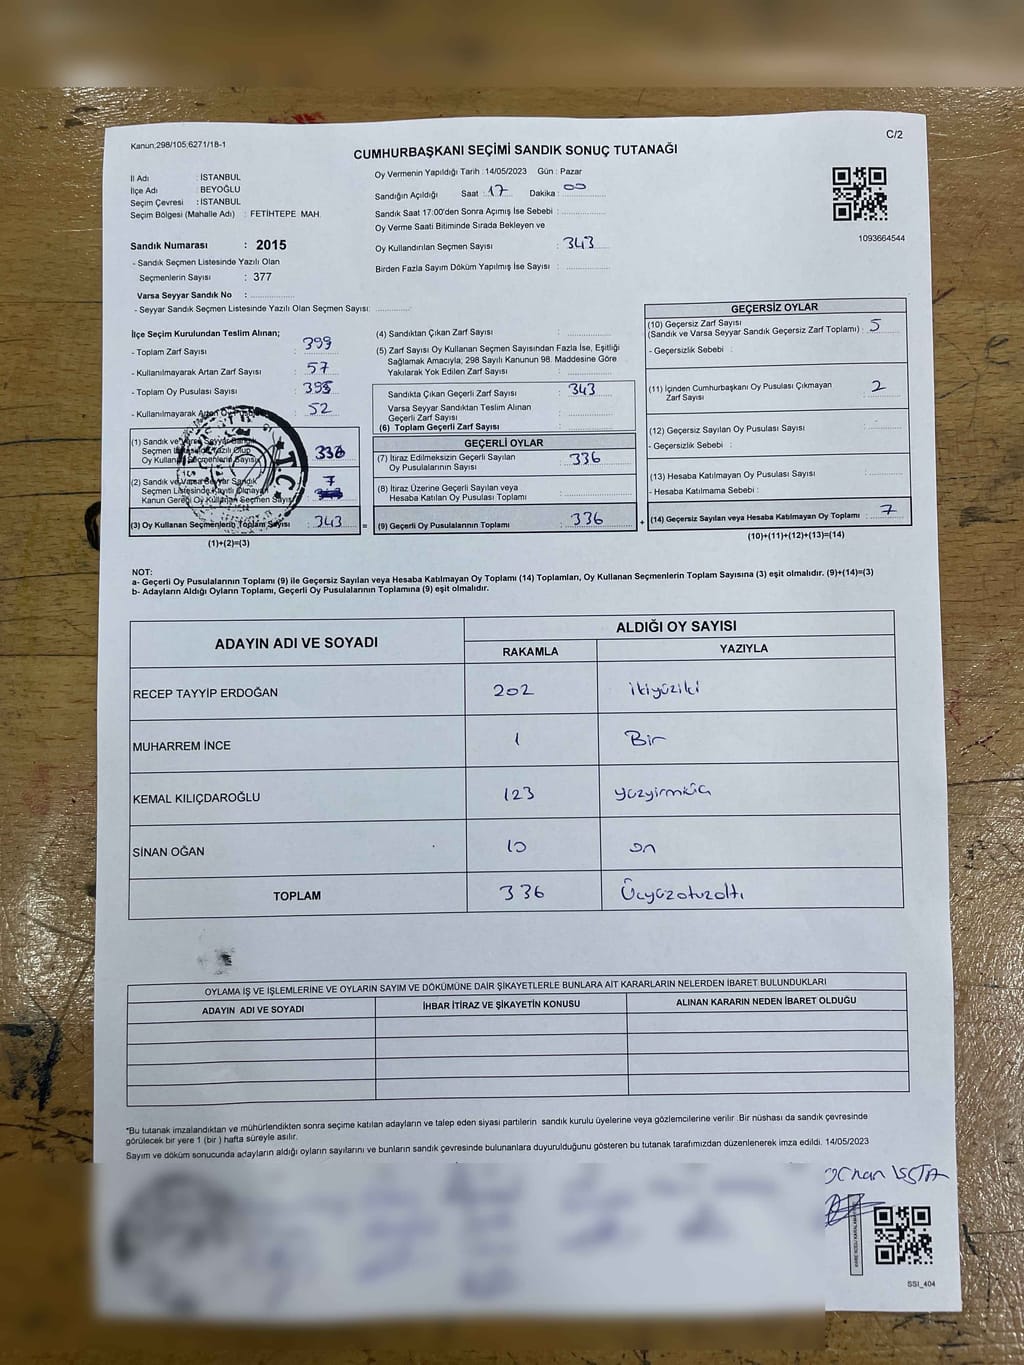 Kanun;298/105;6271/18-1
C/2
CUMHURBAŞKANI SEÇİMİ SANDIK SONUÇ TUTANAĞI
İl Adı : İSTANBUL
İlçe Adı : BEYOĞLU
Seçim Çevresi : İSTANBUL
Seçim Bölgesi (Mahalle Adı) : FETİHTEPE MAH.
Sandık Numarası : 2015
- Sandık Seçmen Listesinde Yazılı Olan
Seçmenlerin Sayısı : 377
Varsa Seyyar Sandık No :
- Seyyar Sandık Seçmen Listesinde Yazılı Olan Seçmen Sayısı:
Oy Vermenin Yapıldığı Tarih : 14/05/2023 Gün : Pazar
Sandığın Açıldığı Saat : 17 Dakika : 00
Sandık Saat 17:00'den Sonra Açımış İse Sebebi :
Oy Verme Saati Bitiminde Sırada Bekleyen ve
Oy Kullandırılan Seçmen Sayısı : 343
Birden Fazla Sayım Döküm Yapılmış İse Sayısı :
1093664544
İlçe Seçim Kurulundan Teslim Alınan;
- Toplam Zarf Sayısı : 399
- Kullanılmayarak Artan Zarf Sayısı : 57
- Toplam Oy Pusulası Sayısı :
- Kullanılmayarak Artan : 52
(1) Sandık ve Varsa Seyyar Sandık
Seçmen Listesinde Yazılı Olup
Oy Kullanan Seçmenlerin Sayısı : 336
(2) Sandık ve Varsa Seyyar Sandık
Seçmen Listesinde Kayıtlı Olmayan
Kanun Gereği Oy Kullanan Seçmen Sayısı : 7
(3) Oy Kullanan Seçmenlerin Toplam Sayısı : 343 =
(1)+(2)=(3)
T.C.
(4) Sandıktan Çıkan Zarf Sayısı :
(5) Zarf Sayısı Oy Kullanan Seçmen Sayısından Fazla İse, Eşitliği
Sağlamak Amacıyla; 298 Sayılı Kanunun 98. Maddesine Göre
Yakılarak Yok Edilen Zarf Sayısı :
Sandıkta Çıkan Geçerli Zarf Sayısı : 343
Varsa Seyyar Sandıktan Teslim Alınan
Geçerli Zarf Sayısı :
(6) Toplam Geçerli Zarf Sayısı :
GEÇERLİ OYLAR
(7) İtiraz Edilmeksizin Geçerli Sayılan
Oy Pusulalarının Sayısı : 336
(8) İtiraz Üzerine Geçerli Sayılan veya
Hesaba Katılan Oy Pusulası Toplamı :
(9) Geçerli Oy Pusulalarının Toplamı : 336 +
GEÇERSİZ OYLAR
(10) Geçersiz Zarf Sayısı
(Sandık ve Varsa Seyyar Sandık Geçersiz Zarf Toplamı) : 5
- Geçersizlik Sebebi :
(11) İçinden Cumhurbaşkanı Oy Pusulası Çıkmayan
Zarf Sayısı : 2
(12) Geçersiz Sayılan Oy Pusulası Sayısı :
- Geçersizlik Sebebi :
(13) Hesaba Katılmayan Oy Pusulası Sayısı :
- Hesaba Katılmama Sebebi :
(14) Geçersiz Sayılan veya Hesaba Katılmayan Oy Toplamı : 7
(10)+(11)+(12)+(13)=(14)
NOT:
a- Geçerli Oy Pusulalarının Toplamı (9) ile Geçersiz Sayılan veya Hesaba Katılmayan Oy Toplamı (14) Toplamları, Oy Kullanan Seçmenlerin Toplam Sayısına (3) eşit olmalıdır. (9)+(14)=(3)
b- Adayların Aldığı Oyların Toplamı, Geçerli Oy Pusulalarının Toplamına (9) eşit olmalıdır.
ADAYIN ADI VE SOYADI ALDIĞI OY SAYISI
RAKAMLA YAZIYLA
RECEP TAYYİP ERDOĞAN 202 ikiyüziki
MUHARREM İNCE 1 Bir
KEMAL KILIÇDAROĞLU 123
SİNAN OĞAN 10 on
TOPLAM 336 Üçyüzotuzaltı
OYLAMA İŞ VE İŞLEMLERİNE VE OYLARIN SAYIM VE DÖKÜMÜNE DAİR ŞİKAYETLERLE BUNLARA AİT KARARLARIN NELERDEN İBARET BULUNDUKLARI
ADAYIN ADI VE SOYADI İHBAR İTİRAZ VE ŞİKAYETİN KONUSU ALINAN KARARIN NEDEN İBARET OLDUĞU
*Bu tutanak imzalandıktan ve mühürlendikten sonra seçime katılan adayların ve talep eden siyasi partilerin sandık kurulu üyelerine veya gözlemcilerine verilir .Bir nüshası da sandık çevresinde
görülecek bir yere 1 (bir ) hafta süreyle asılır.
Sayım ve döküm sonucunda adayların aldığı oyların sayılarını ve bunların sandık çevresinde bulunanlara duyurulduğunu gösteren bu tutanak tarafımızdan düzenlenerek imza edildi. 14/05/2023
SSI_404